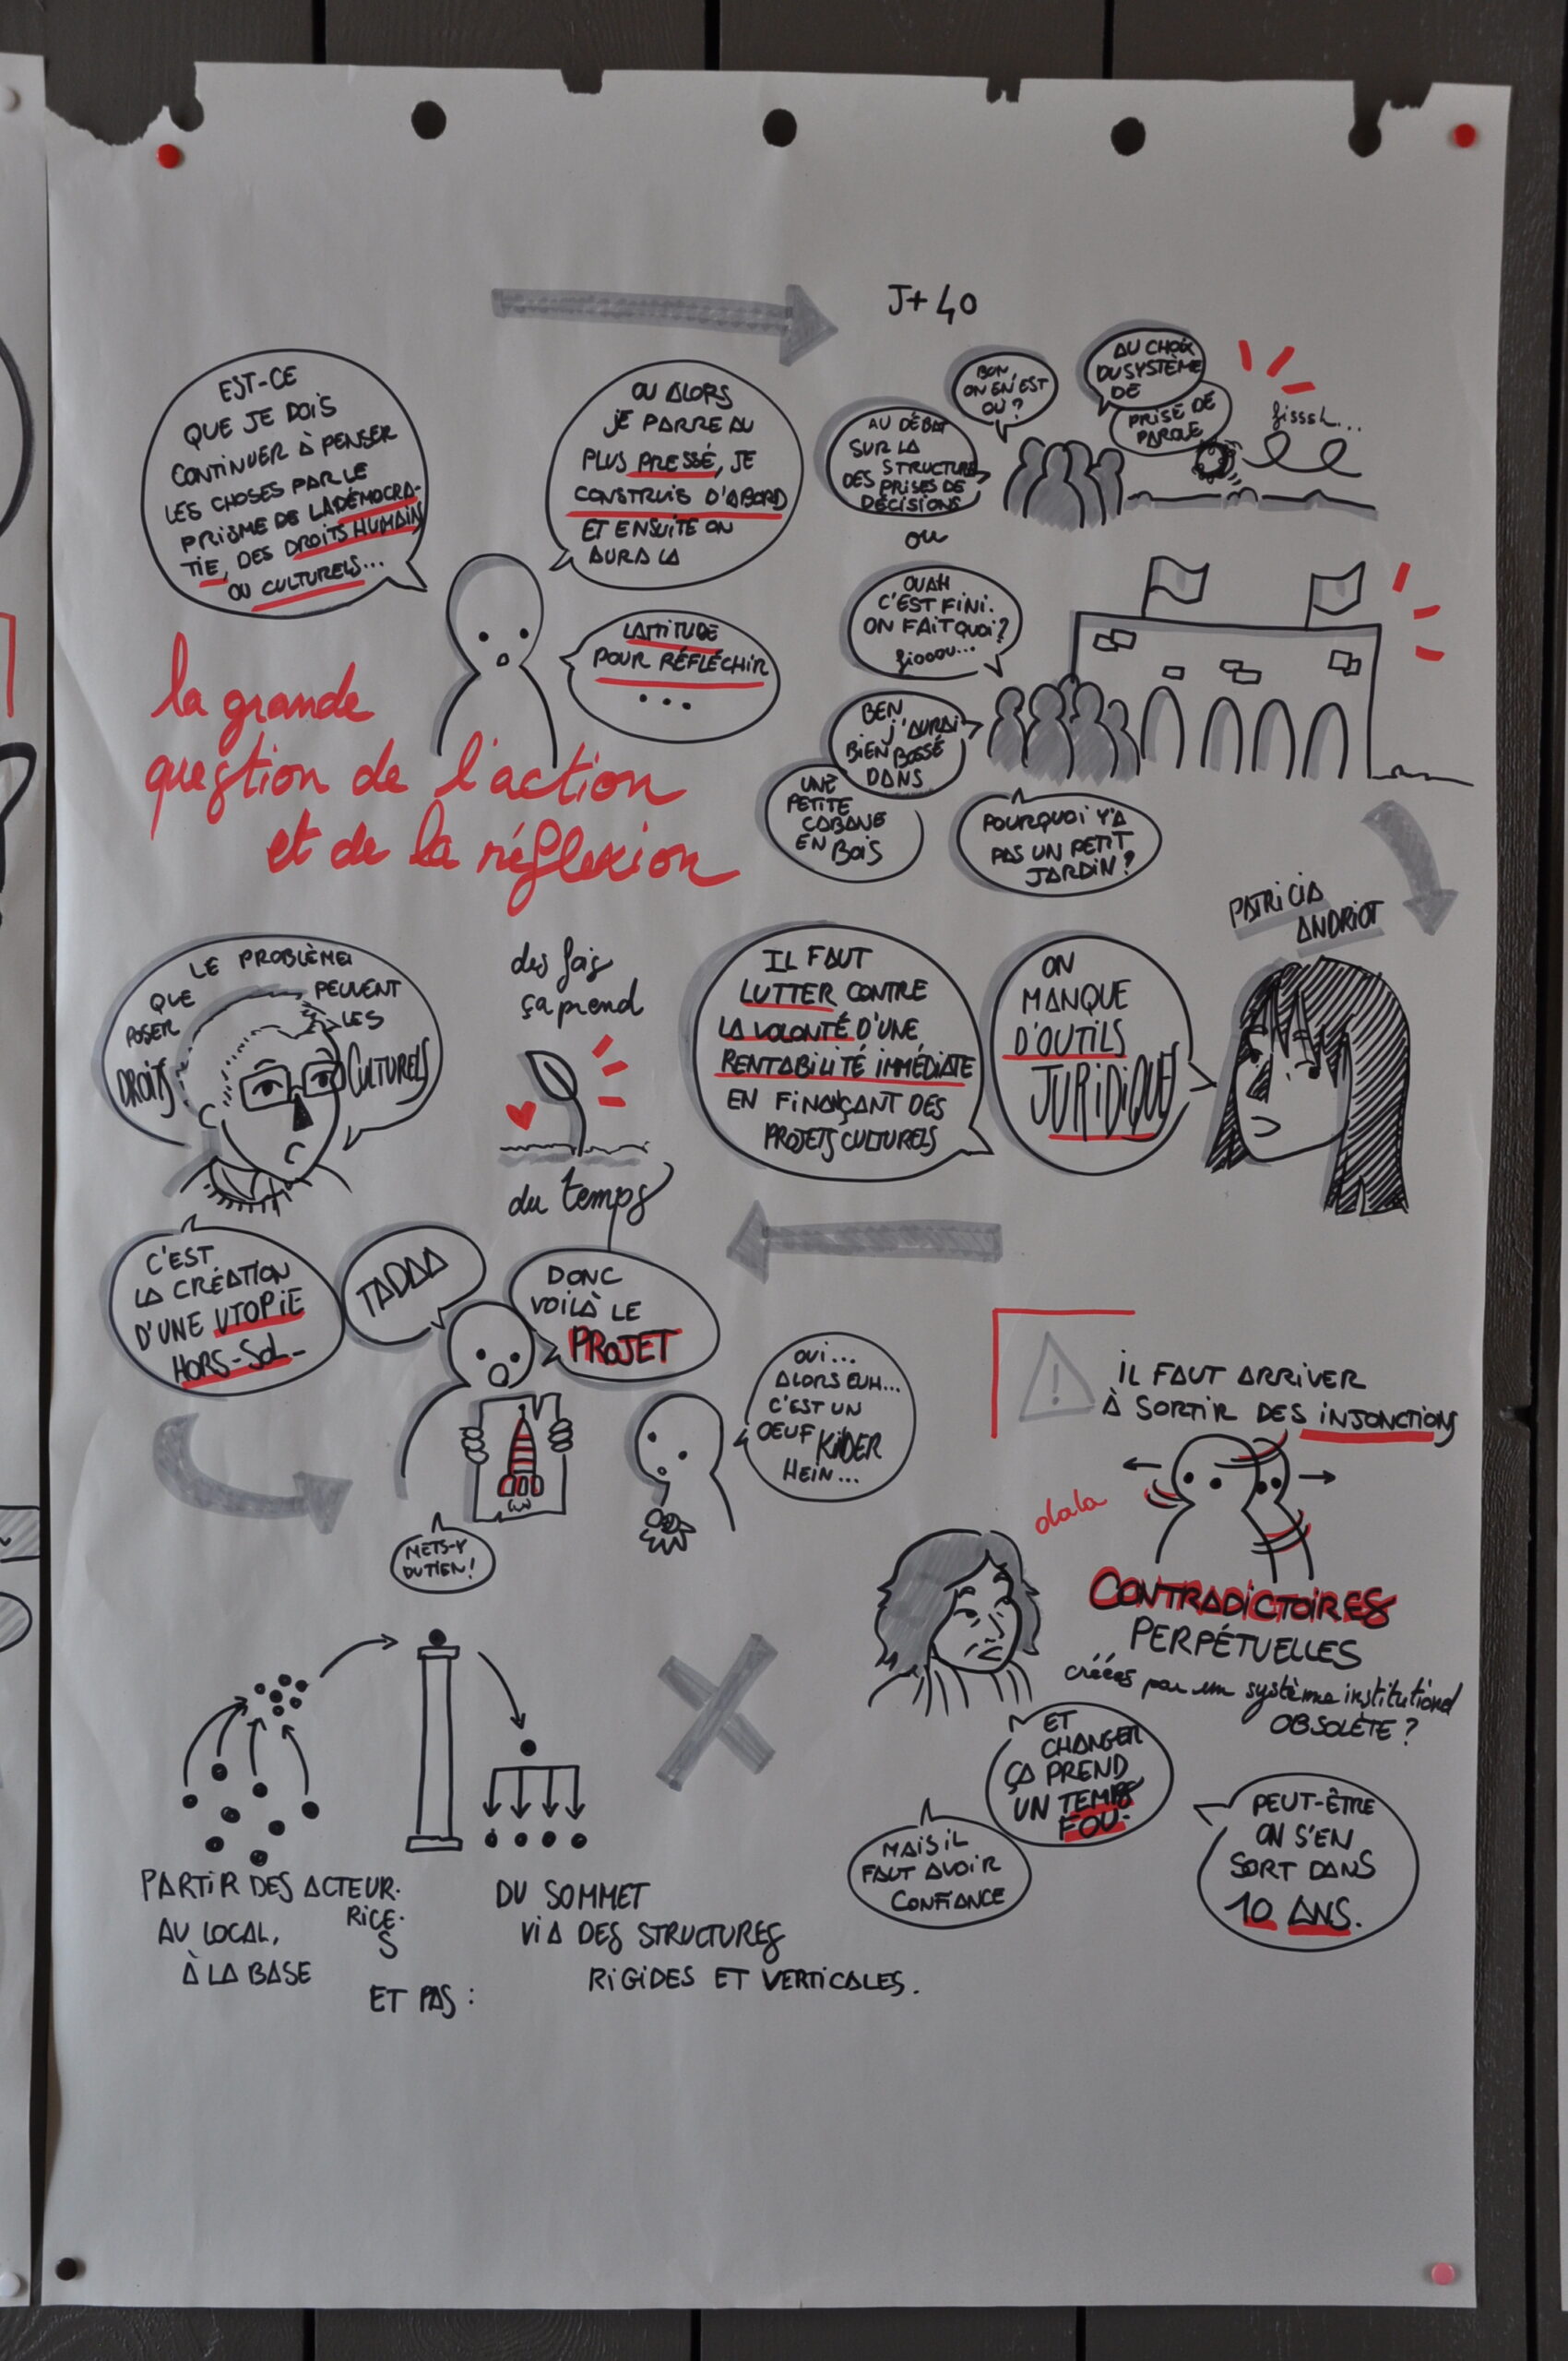 EST-CE
QUE JE DOIS
CONTINUER À PENSER
LES CHOSES PAR LE
PRISME DE LA DÉMOCRA-
TIE, DES DROITS HUMAIN
OU CULTURELS...
OU ALORS
JE PARRE AU
PLUS PRESSÉ, JE
CONSTRUIS D'ABORD
ET ENSUITE ON
AURA LA
LATTITUDE
POUR RÉFLÉCHIR
...
la grande
question de l'action
et de la réflexion
J+40
BON,
ON EN EST
OÙ ?
AU DÉBAT
SUR LA
STRUCTURE
DES PRISES DE
DÉCISIONS
AU CHOIX
DU SYSTÈME
DE
PRISE DE
PAROLE
fisssh...
ou
OUAH
C'EST FINI.
ON FAIT QUOI ?
fiooou...
BEN
J'AURAI
BIEN BOSSÉ
DANS
UNE
PETITE
CABANE
EN BOIS
POURQUOI Y'A
PAS UN PETIT
JARDIN ?
PATRICIA
ANDRIOT
ON
MANQUE
D'OUTILS
JURIDIQUES
IL FAUT
LUTTER CONTRE
LA VOLONTÉ D'UNE
RENTABILITÉ IMMÉDIATE
EN FINANÇANT DES
PROJETS CULTURELS
des fois
ça prend
du temps
LE PROBLÈME
QUE PEUVENT
POSER LES
DROITS CULTURELS
C'EST
LA CRÉATION
D'UNE UTOPIE
HORS-SOL-
TADAA
DONC
VOILÀ LE
PROJET
OUI...
ALORS EUH...
C'EST UN
OEUF KINDER
HEIN...
METS-Y
DU TIEN !
!
IL FAUT ARRIVER
À SORTIR DES INJONCTIONS
olala
CONTRADICTOIRES
PERPÉTUELLES
créées par un système institutionel
OBSOLÈTE ?
ET
CHANGER
ÇA PREND
UN TEMPS
FOU-
MAIS IL
FAUT AVOIR
CONFIANCE
PEUT-ÊTRE
ON S'EN
SORT DANS
10 ANS.
PARTIR DES ACTEUR·
RICE·
S
AU LOCAL,
À LA BASE
ET PAS :
DU SOMMET
VIA DES STRUCTURES
RIGIDES ET VERTICALES.